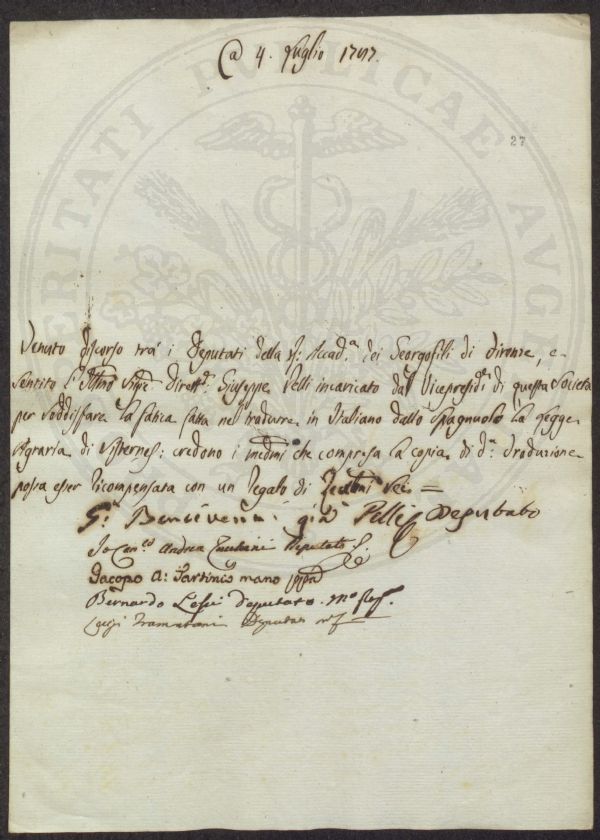 A 4. Luglio 1797.
27
Venuto discorso trà i Deputati della R: Accad.ª dei Georgofili di Firenze, e
sentito l'Ill.mo Sig.re Dirett.re Giuseppe Pelli incaricato dal Vicepresid.e di questa Società
per soddisfare la fatica fatta nel tradurre in Italiano dallo Spagnuolo la Legge
Agraria di credono i med.mi che compresa la copia di d.ª Traduzione
possa esser ricompensata con un regalo di Zecchini sei =
G. Bencivenni già Pelli Deputato
Io Can.co Andrea Zucchini Deputato
Jacopo A: Tartinis mano pp.ª
Bernardo Lessi Deputato m.º pp.ª
Luigi Tramontani Deputato
VERITATI PVBLICAE AVGE